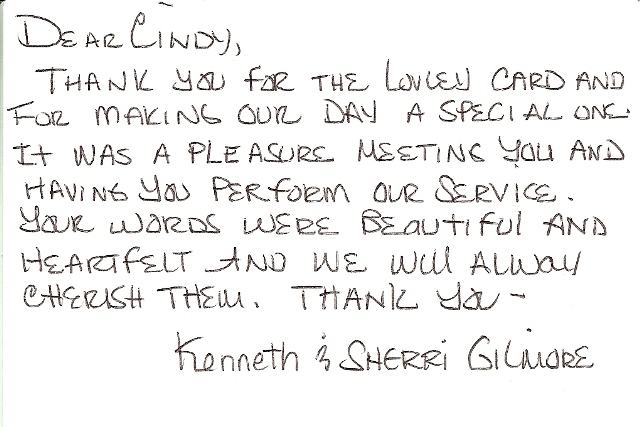 Dear Cindy,
Thank you for the lovley card and
for making our day a special one.
It was a pleasure meeting you and
having you perform our service.
Your words were beautiful and
heartfelt and we will alway
cherish them. Thank you -
Kenneth & Sherri Gilmore